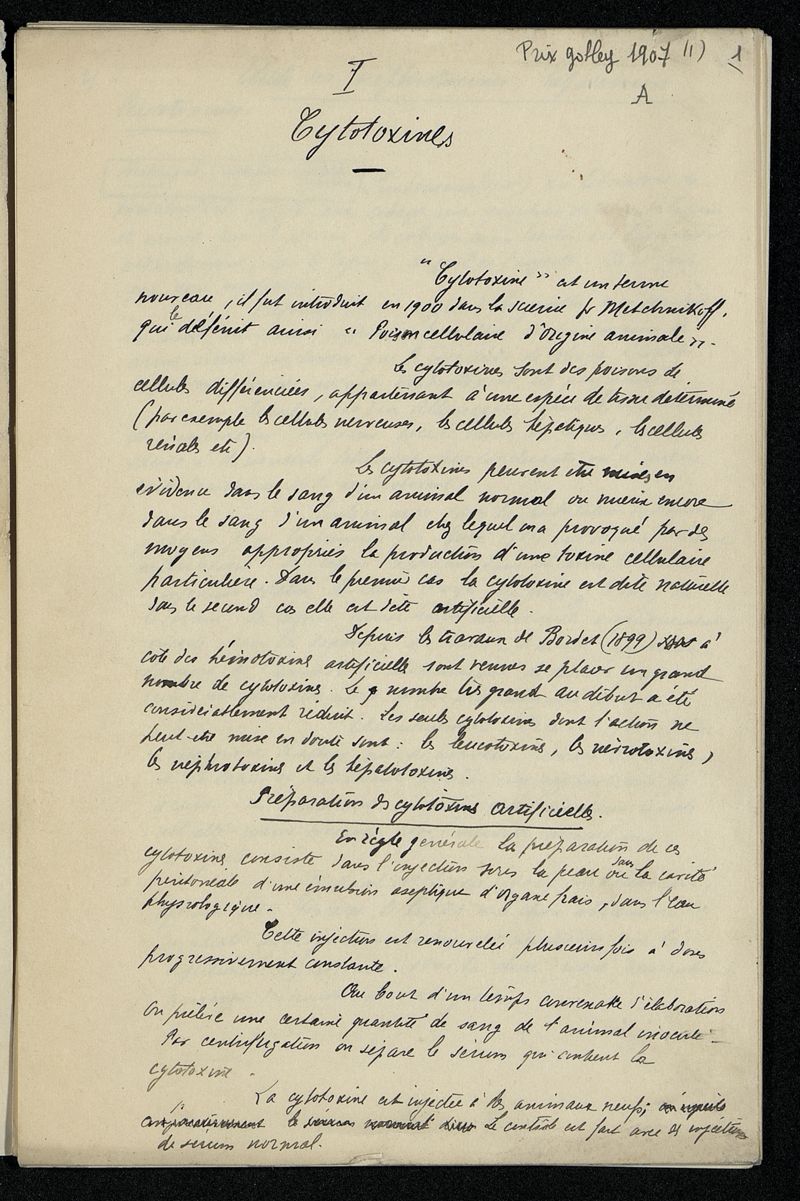 Prix golley 1907 (1) 1
A
I
Cytotoxines
"Cytotoxine" est un terme
nouveau, il fut introduit en 1900 dans la science pr Metchnikoff,
qui le défénit ainsi "Poison cellulaire d'origine animale".
Les cytotoxines sont des poisons de
cellules différenciées, appartenant à une espèce de tissu déterminé
(par exemple les cellules nerveuses, les cellules hépatiques, les cellules
rénales etc).
Les cytotoxines peuvent être mises en
évidence dans le sang d'un animal normal ou mieux encore
dans le sang d'un animal chez lequel on a provoqué par des
moyens appropriés la production d'une toxine cellulaire
particulière. Dans le premier cas la cytotoxine est dite naturelle
dans le second cas elle est dite artificielle.
Depuis les travaux de Bordet (1899) à
coté des hémotoxines artificielle sont venues se placer un grand
nombre de cytotoxines. Le nombre très grand au début a été
considérablement réduit. Les seules cytotoxines dont l'action ne
peut-être mise en doute sont : les leucotoxines, les névrotoxines,
les néphrotoxines et les hépatotoxines.
Préparation des cytotoxines artificielles.
En règle générale la préparation de ces
cytotoxines consiste dans l'injection sous la peau ou dans la cavité
péritonéale d'une émulsion aseptique d'organe frais, dans l'eau
physiologique.
Cette injection est renouvelée plusieurs fois à doses
progressivement constante.
Au bout d'un temps convenable d'élaboration
on prélève une certaine quantité de sang de l'animal inoculé.
Par centrifugation on sépare le sérum qui contient la
cytotoxine.
La cytotoxine est injectée à des animaux neufs;
le sérum normal Le contrôle est fait avec des injections
de sérum normal.